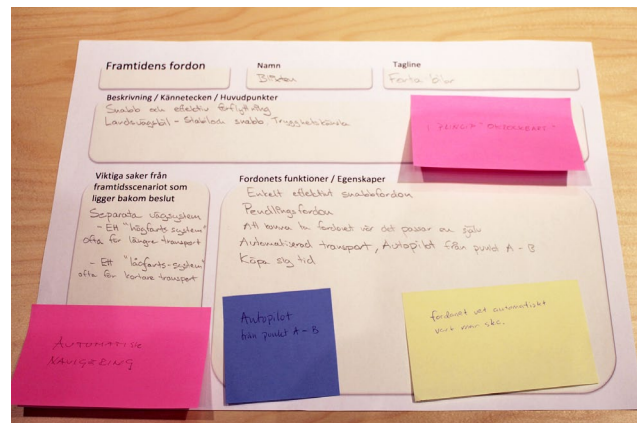 Framtidens fordon
Namn
Tagline
Beskrivning / Kännetecken / Huvudpunkter
Snabb och effektiv förflyttning
Landsvägsbil - Stabil och snabb, Trygghetskänsla
Viktiga saker från
framtidsscenariot som
ligger bakom beslut
Separata vägsystem
- Ett "högfarts system"
ofta för längre transport
- Ett "lågfarts-system"
ofta för kortare transport
Fordonets funktioner / Egenskaper
Enkelt effektivt snabbfordon
Pendlingsfordon
Att kunna ta fordonet när det passar en själv
Automatiserad transport, Autopilot från punkt A - B
Köpa sig tid
AUTOMATIVE
NAVIGERING
Autopilot
från punkt A - B
fordonet vet automatiskt
vart man ska.